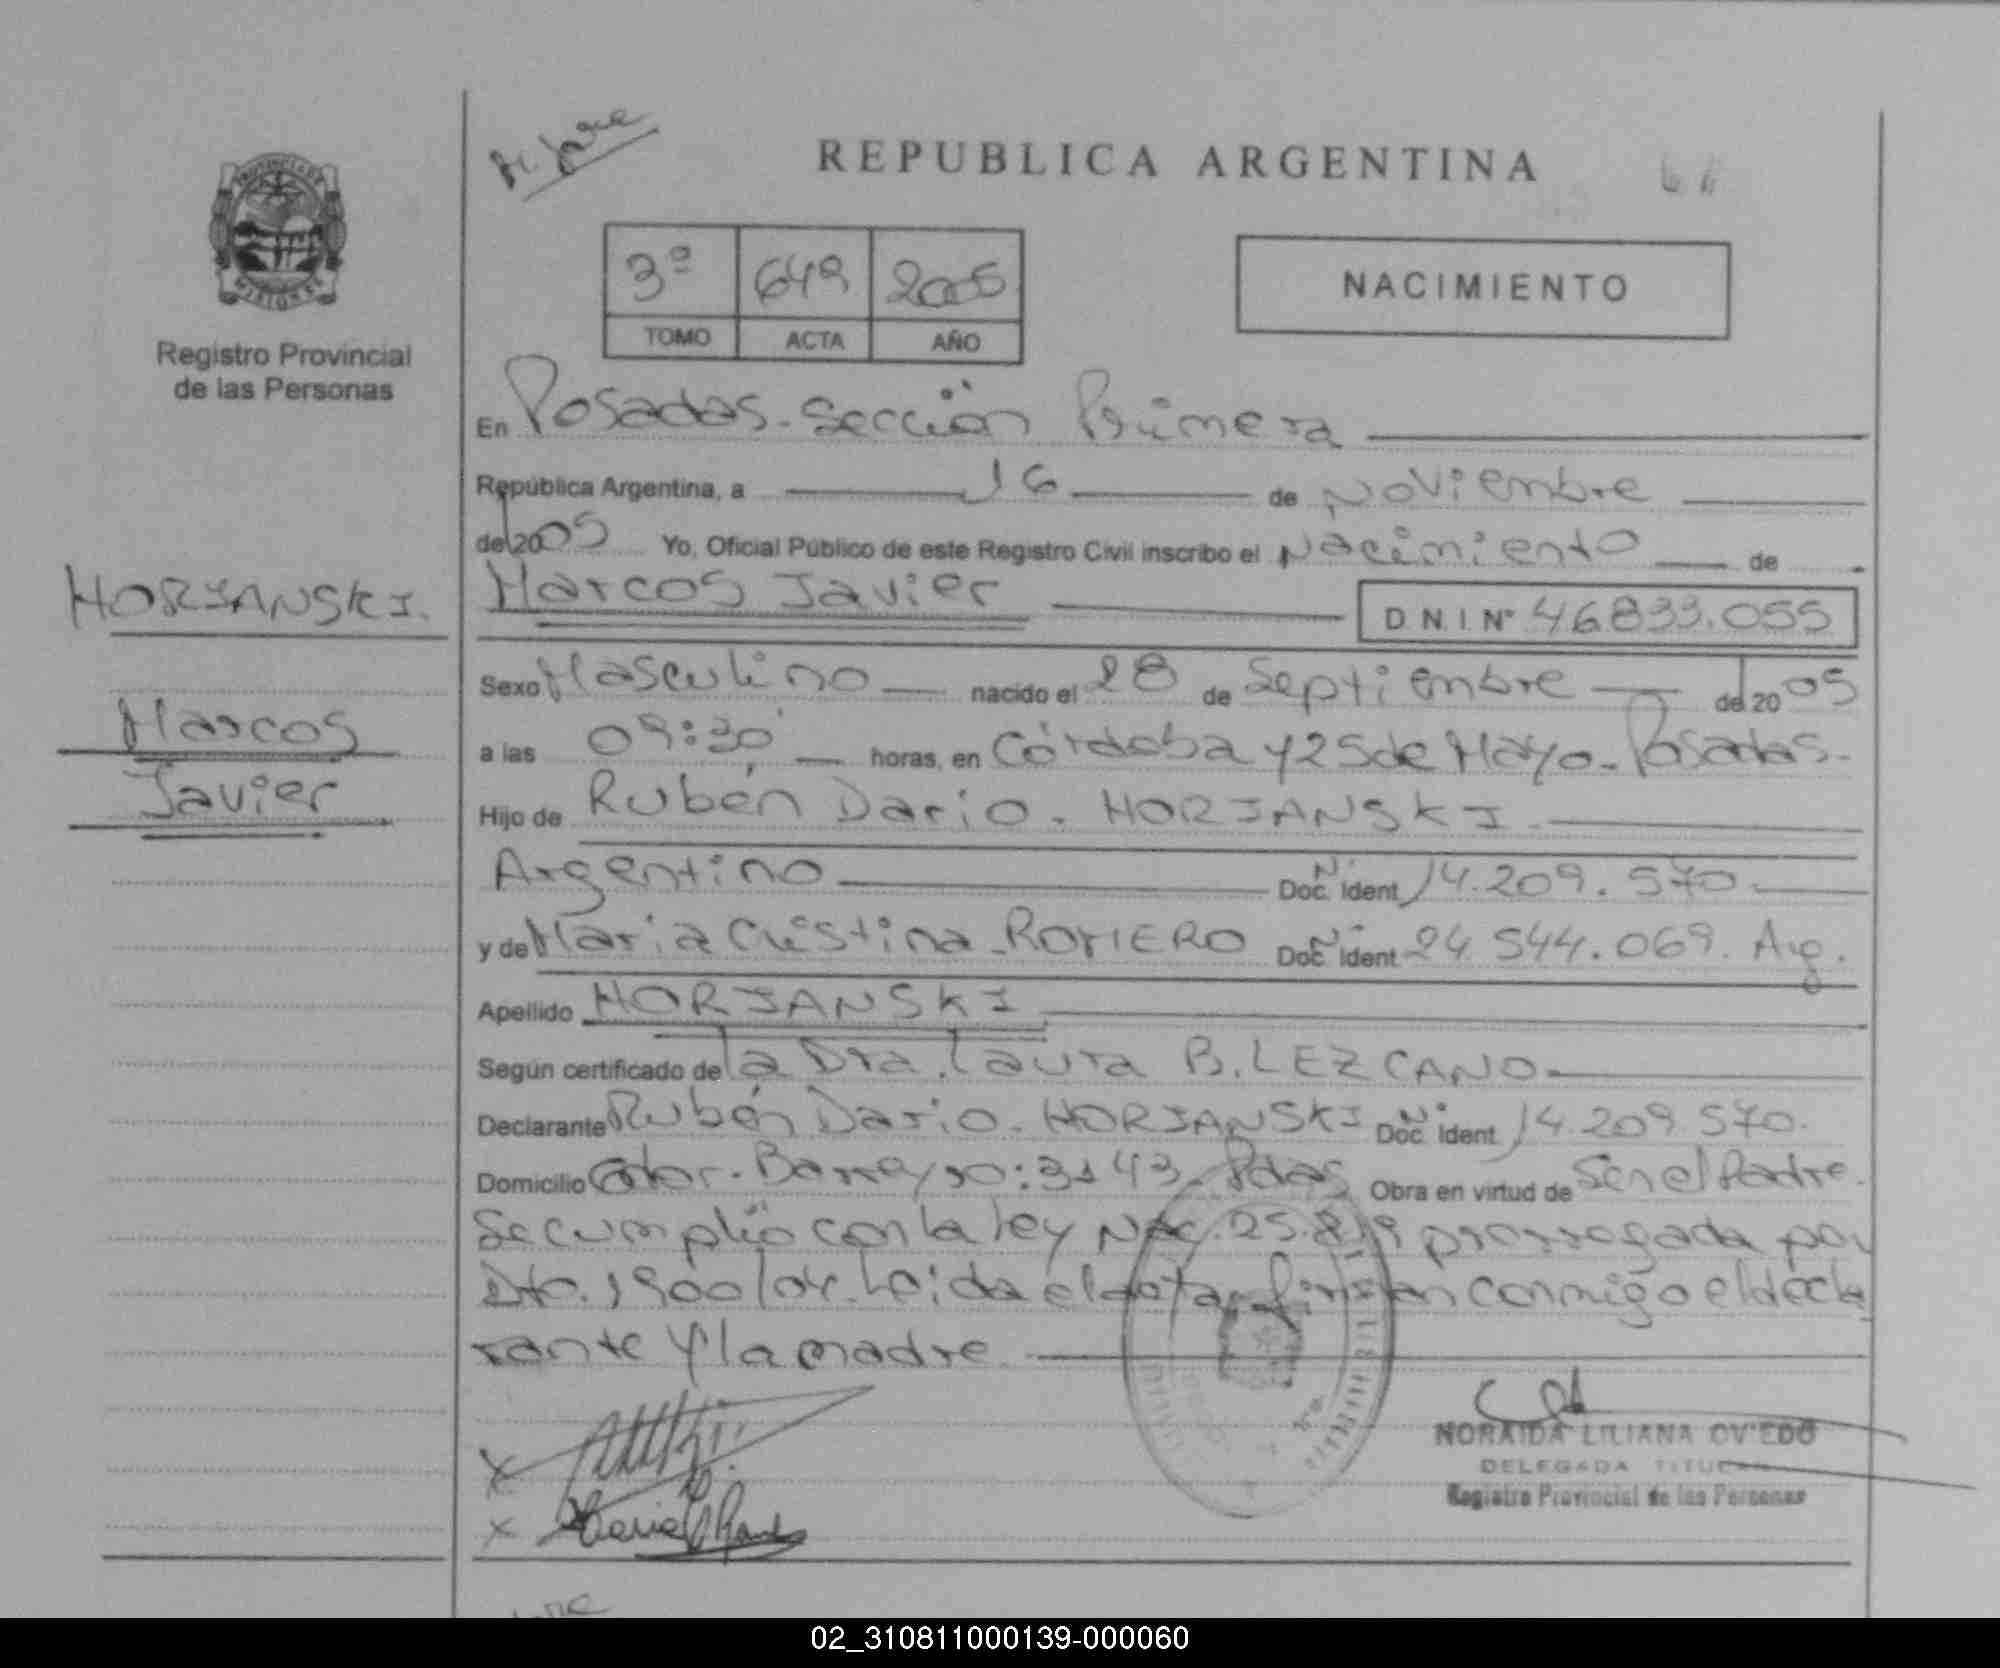 REPUBLICA ARGENTINA
PROVINCIA DE
MISIONES
Registro Provincial
de las Personas
3º 649 2005
TOMO ACTA AÑO
NACIMIENTO
En Posadas - Sección Primera
República Argentina, a 16 de Noviembre
de 2005 Yo, Oficial Público de este Registro Civil inscribo el Nacimiento de
HORJANSKI.
Marcos Javier D.N.I. Nº 46833.055
Sexo Masculino nacido el 28 de Septiembre de 2005
Marcos
a las 09:30' horas, en Córdoba y 25 de Mayo - Posadas.-
Javier
Hijo de Rubén Dario - HORJANSKI
Argentino Nº Doc. Ident 14.209.570
y de Maria Cristina - ROMERO Nº Doc. Ident 24.544.069. Arg.
Apellido HORJANSKI
Según certificado de la Dra. Laura B. LEZCANO
Declarante Rubén Dario - HORJANSKI Nº Doc. Ident 14.209.570.
Domicilio Barreyro: 3143 - Pdas Obra en virtud de Ser el Padre.
Se cumplió con la ley Nac. 25.819 prorrogada por
Dto. 1900/04. Leida el acta, firman conmigo el decla
rante y la madre
NORAIDA LILIANA OVIEDO
DELEGADA TITULAR
Registro Provincial de las Personas
02_310811000139-000060